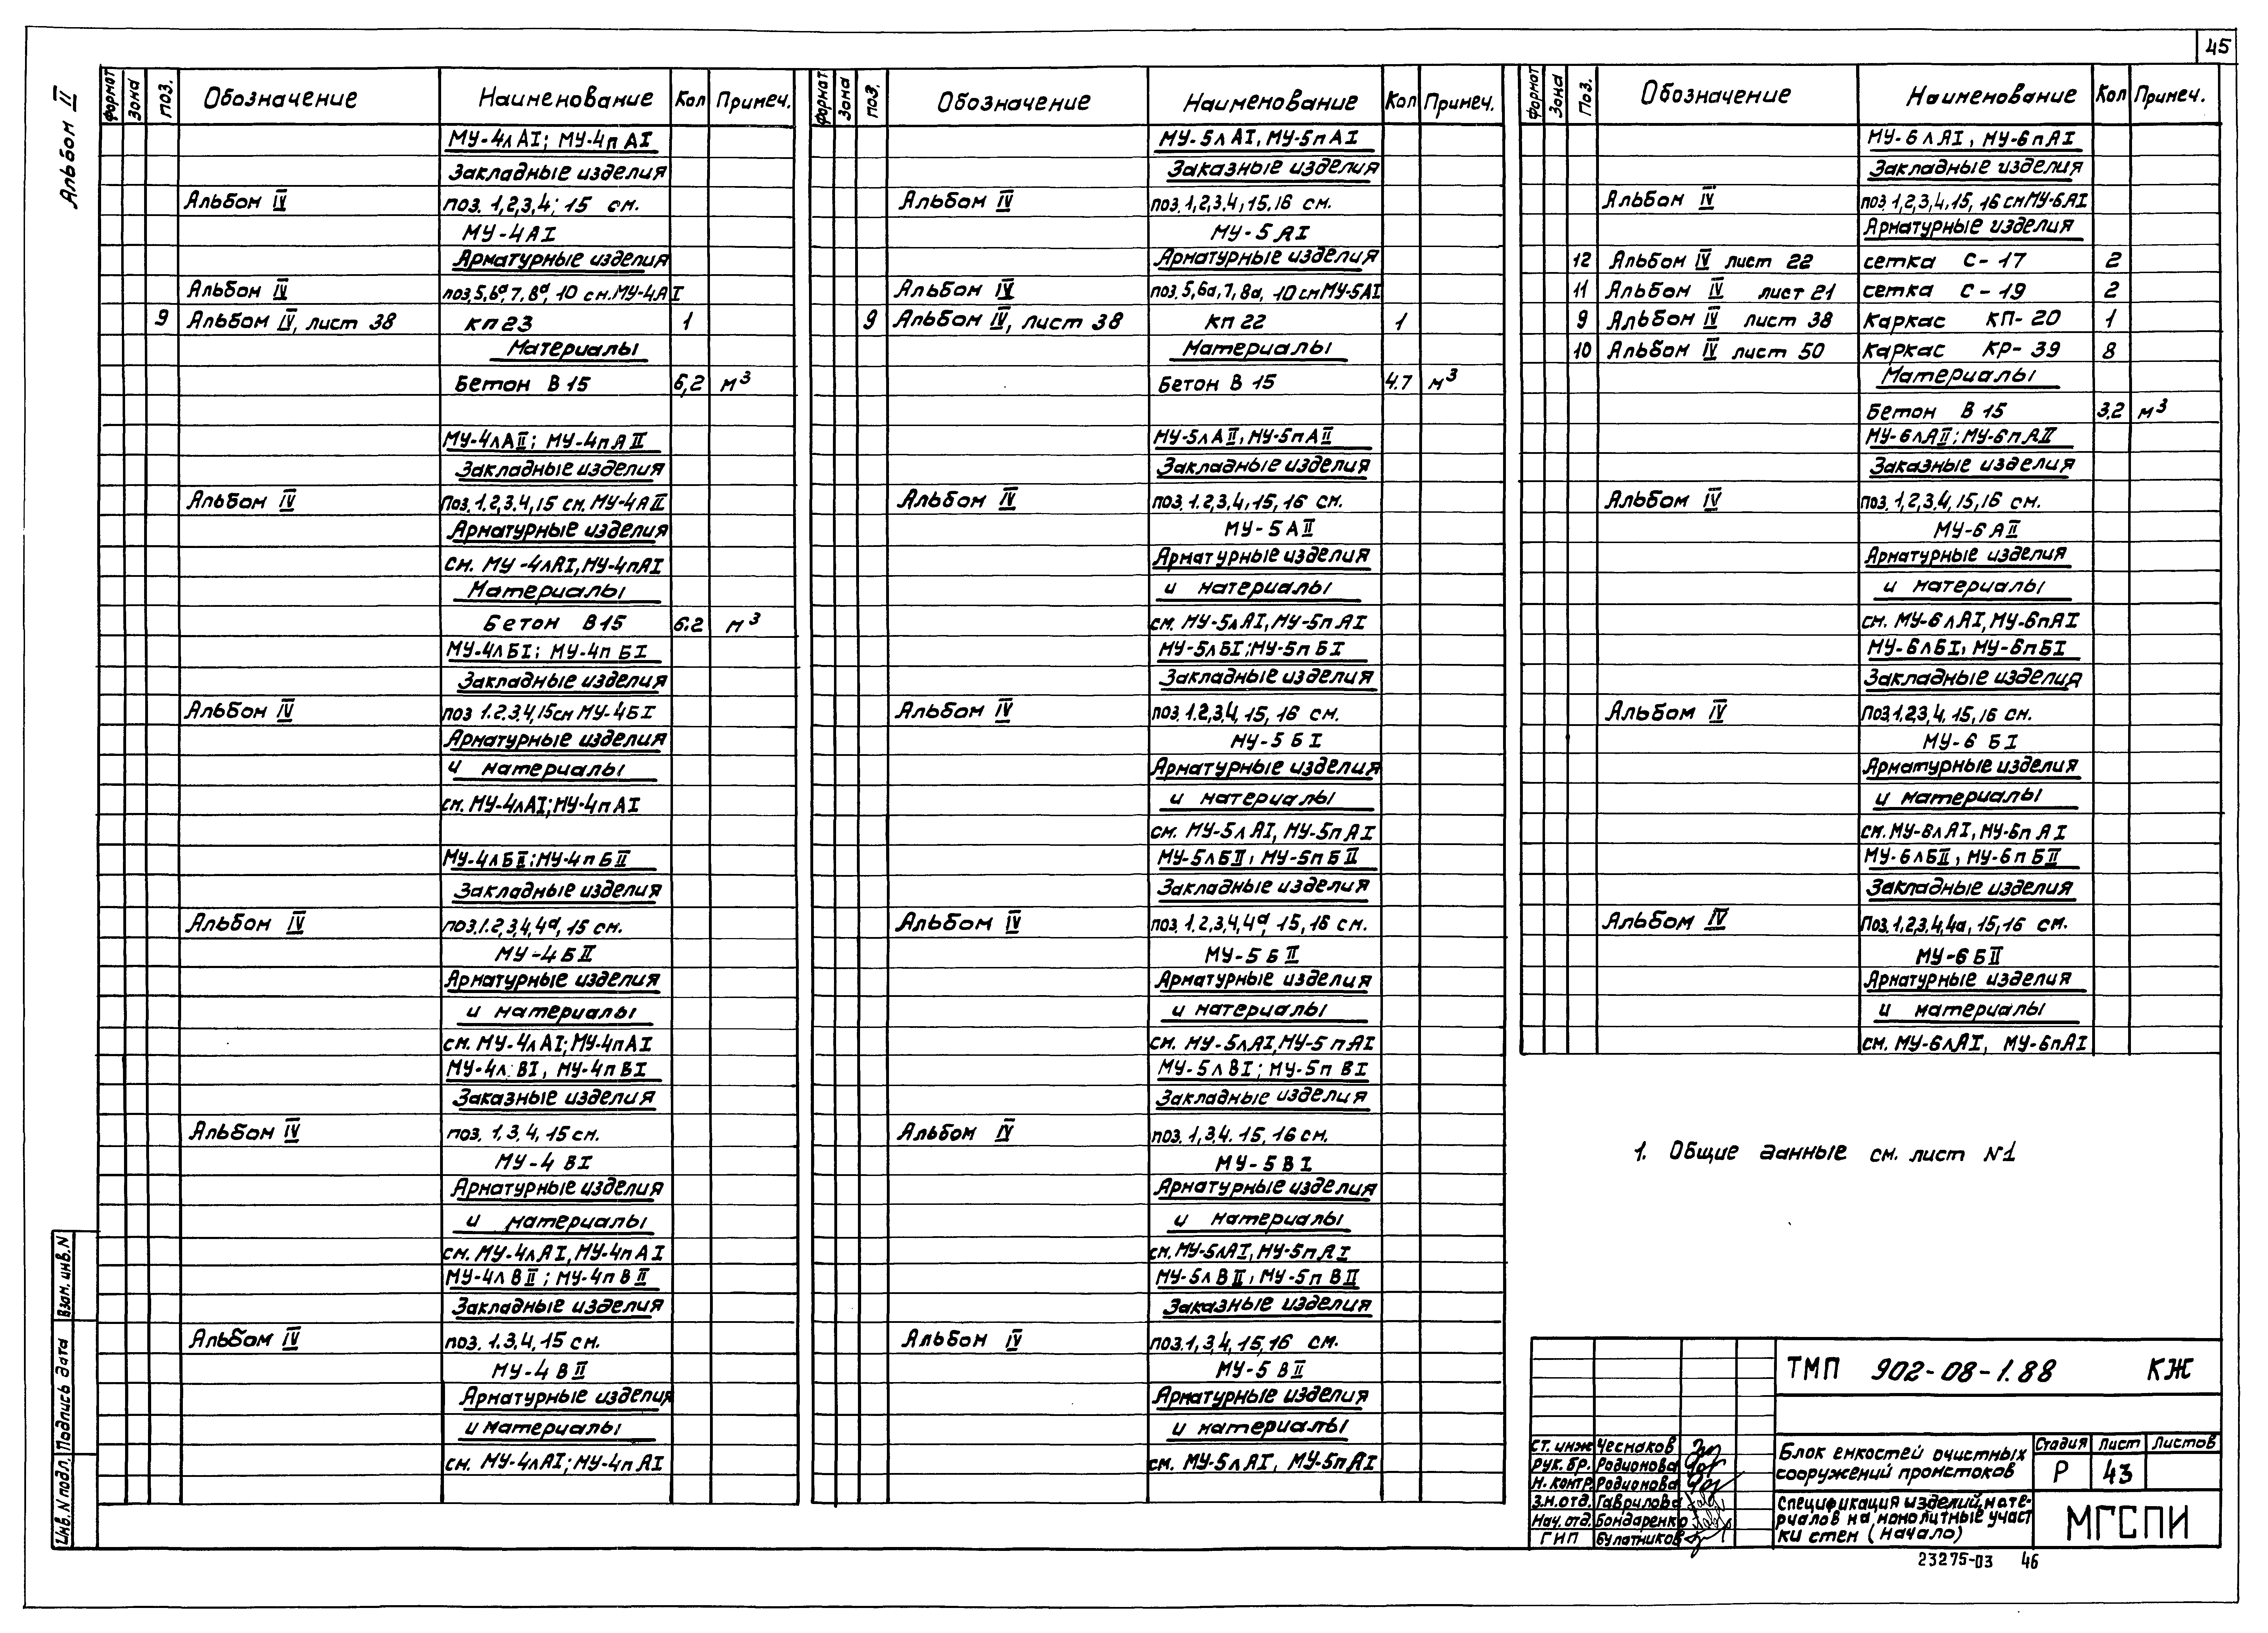 45
Альбом II
Формат Зона Поз. Обозначение Наименование Кол Примеч.
МУ-4лАI; МУ-4пАI
Закладные изделия
Альбом IV поз. 1,2,3,4; 15 см.
МУ-4АI
Арматурные изделия
Альбом IV поз.5,6а,7,8а, 10 см.МУ-4АI
9 Альбом IV, лист 38 кп23 1
Материалы
Бетон В15 6,2 м³
МУ-4лАII; МУ-4пАII
Закладные изделия
Альбом IV Поз.1.2,3.4,15 см. МУ-4АII
Арматурные изделия
см. МУ-4лАI,МУ-4пАI
Материалы
Бетон В15 6.2 м³
МУ-4лБI; МУ-4пБI
Закладные изделия
Альбом IV поз 1.2.3.4,15см МУ-4БI
Арматурные изделия
и материалы
см. МУ-4лАI;МУ-4пАI
МУ-4лБII;МУ-4пБII
Закладные изделия
Альбом IV поз.1.2,3,4,4а, 15 см.
МУ-4БII
Арматурные изделия
и материалы
см. МУ-4лАI;МУ-4пАI
МУ-4лВI, МУ-4пВI
Заказные изделия
Альбом IV поз. 1,3,4, 15 см.
МУ-4 ВI
Арматурные изделия
и материалы
см. МУ-4лАI, МУ-4пАI
МУ-4лВII; МУ-4пВII
Закладные изделия
Альбом IV поз. 1.3,4,15 см.
МУ-4 ВII
Арматурные изделия
и материалы
см. МУ-4лАI; МУ-4пАI
Формат Зона поз. Обозначение Наименование Кол Примеч.
МУ-5лАI, МУ-5пАI
Заказные изделия
Альбом IV поз.1,2,3,4,15,16 см.
МУ-5АI
Арматурные изделия
Альбом IV поз.5,6а,7,8а, 10смМУ-5АI
9 Альбом IV, лист 38 кп 22 1
Материалы
Бетон В 15 4.7 м³
МУ-5лАII, МУ-5пАII
Закладные изделия
Альбом IV поз. 1.2,3,4,15, 16 см.
МУ-5АII
Арматурные изделия
и материалы
см. МУ-5лАI, МУ-5пАI
МУ-5лБI;МУ-5пБI
Закладные изделия
Альбом IV поз.1.2,3,4, 15, 16 см.
МУ-5БI
Арматурные изделия
и материалы
см. МУ-5лАI, МУ-5пАI
МУ-5лБII, МУ-5пБII
Закладные изделия
Альбом IV поз. 1.2,3,4,4а, 15, 16 см.
МУ-5БII
Арматурные изделия
и материалы
см. МУ-5лАI,МУ-5пАI
МУ-5лВI; МУ-5пВI
Закладные изделия
Альбом IV поз. 1,3,4. 15, 16 см.
МУ-5ВI
Арматурные изделия
и материалы
см. МУ-5лАI, МУ-5пАI
МУ-5лВII, МУ-5пВII
Заказные изделия
Альбом IV поз.1,3,4,15,16 см.
МУ-5 ВII
Арматурные изделия
и материалы
см. МУ-5лАI, МУ-5пАI
Формат Зона Поз. Обозначение Наименование Кол Примеч.
МУ-6лАI, МУ-6пАI
Закладные изделия
Альбом IV поз 1,2,3,4,15, 16 смМУ-6АI
Арматурные изделия
12 Альбом IV лист 22 сетка С-17 2
11 Альбом IV лист 21 сетка С-19 2
9 Альбом IV лист 38 Каркас КП-20 1
10 Альбом IV лист 50 Каркас КР-39 8
Материалы
Бетон В 15 3,2 м³
МУ-6лАII; МУ-6пАII
Заказные изделия
Альбом IV поз. 1,2,3.4, 15,16 см.
МУ-6АII
Арматурные изделия
и материалы
см. МУ-6лАI, МУ-6пАI
МУ-6лБI, МУ-6пБI
Закладные изделия
Альбом IV Поз.1.2,3,4, 15,16 см.
МУ-6 БI
Арматурные изделия
и материалы
см. МУ-6лАI, МУ-6пАI
МУ-6лБII, МУ-6пБII
Закладные изделия
Альбом IV Поз.1,2,3,4,4а, 15,16 см.
МУ-6БII
Арматурные изделия
и материалы
см. МУ-6лАI, МУ-6пАI
1. Общие данные см. лист N1
Инв. N подл. Подпись дата Взам. инв. N
ТМП 902-08-1.88 КЖ
Ст. инж Чеснаков
Рук. бр. Родионова
Н. контр. Родионова
З.н.отд. Гаврилова
Нач. отд. Бондаренко
ГИП Булатников
Блок емкостей очистных
сооружений промстоков
Стадия Лист Листов
Р 43
Спецификация изделий, мате-
риалов на монолитные участ
ки стен (начало)
МГСПИ
23275-03 46